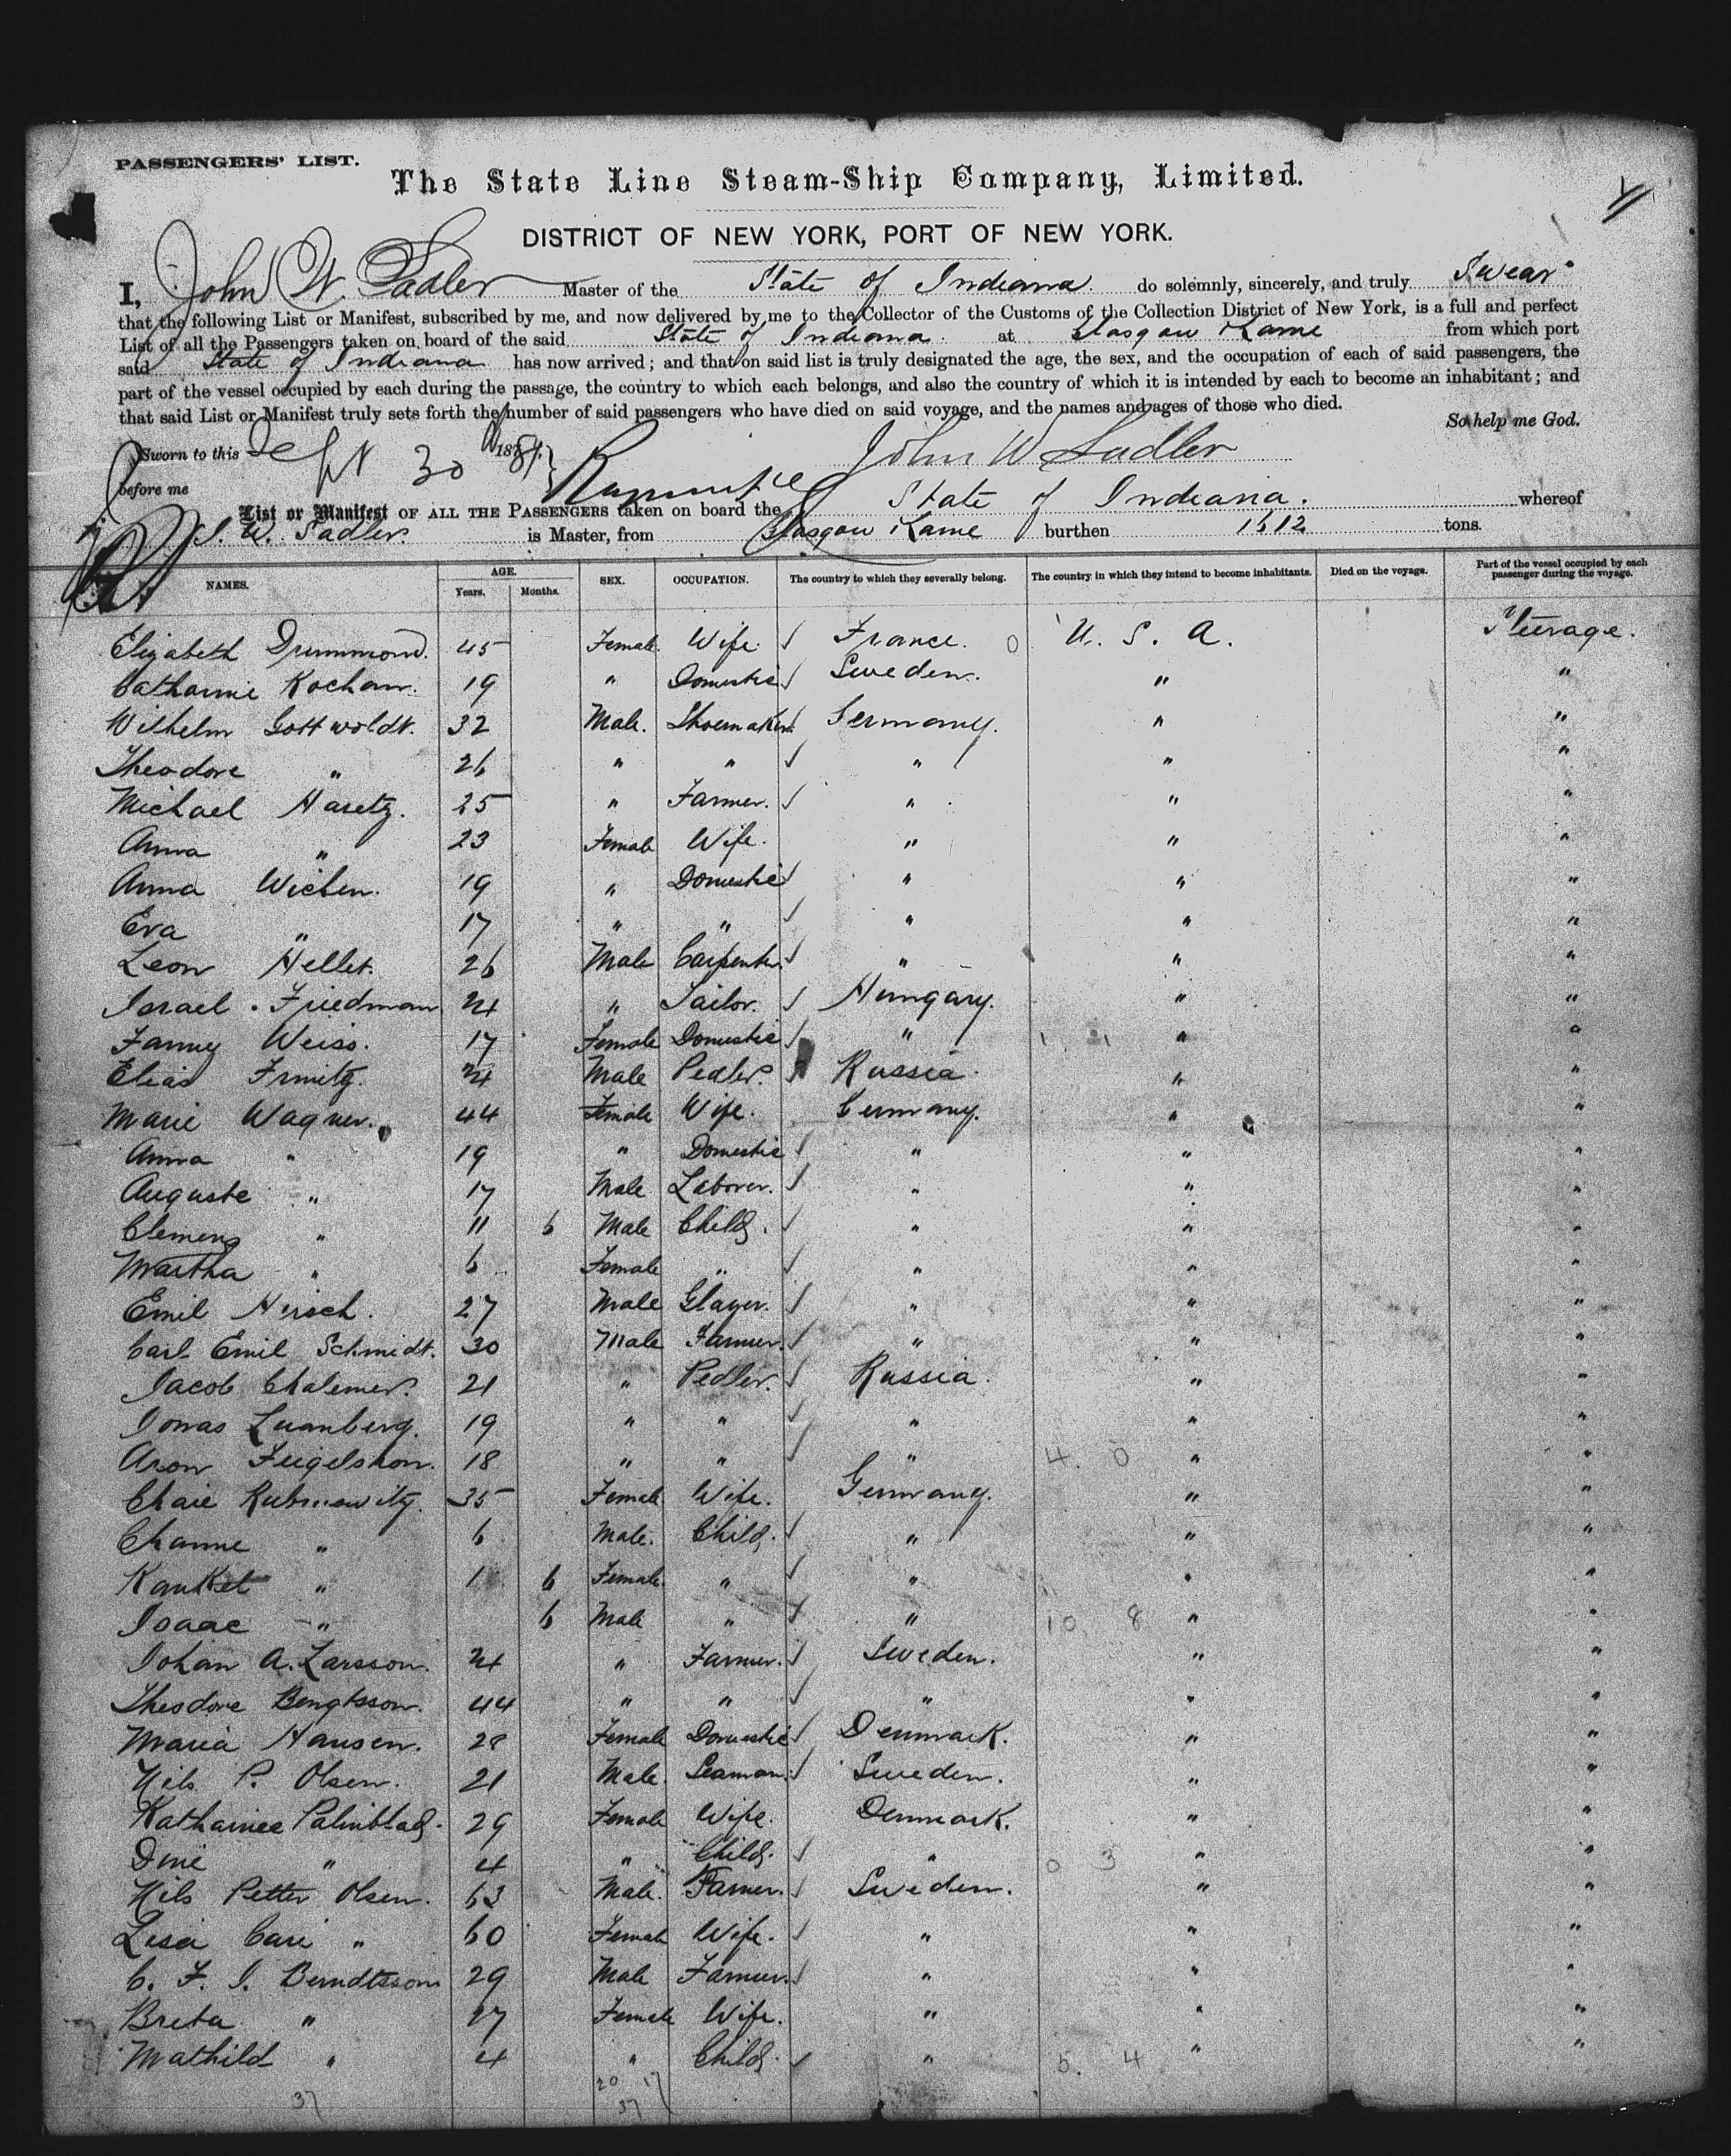 PASSENGERS' LIST.
The State Line Steam-Ship Company, Limited.
DISTRICT OF NEW YORK, PORT OF NEW YORK.
I, John W. Sadler Master of the State of Indiana do solemnly, sincerely, and truly Swear
that the following List or Manifest, subscribed by me, and now delivered by me to the Collector of the Customs of the Collection District of New York, is a full and perfect
List of all the Passengers taken on board of the said State of Indiana. at Glasgow & Larne from which port
said State of Indiana has now arrived; and that on said list is truly designated the age, the sex, and the occupation of each of said passengers, the
part of the vessel occupied by each during the passage, the country to which each belongs, and also the country of which it is intended by each to become an inhabitant; and
that said List or Manifest truly sets forth the number of said passengers who have died on said voyage, and the names and ages of those who died.
So help me God.
Sworn to this Sept 30 188 John W Sadler
before me
List or Manifest OF ALL THE PASSENGERS taken on board the State of Indiana. whereof
J. W. Sadler. is Master, from Glasgow & Larne burthen 1612 tons.
NAMES. AGE. Years. Months. SEX. OCCUPATION. The country to which they severally belong. The country in which they intend to become inhabitants. Died on the voyage. Part of the vessel occupied by each passenger during the voyage.
Elizabeth Drummond. 45 Female. Wife. France. 0 U. S. A. Steerage.
Catharine Kochan. 19 " Domestic Sweden. " "
Wilhelm Gottwoldt. 32 Male. Shoemaker. Germany. " "
Theodore " 26 " " " " "
Michael Haretz. 25 " Farmer. " " "
Anna " 23 Female Wife. " " "
Anna Wichen. 19 " Domestic " " "
Eva " 17 " " " " "
Leon Hellet. 26 Male Carpenter. " " "
Israel Friedman 24 " Tailor. Hungary. " "
Fanny Weiss. 17 Female Domestic " 1. 1 " "
Elias 24 Male Pedler. Russia. " "
Marie Wagner. 44 Female Wife. Germany. " "
Anna " 19 " Domestic " " "
Auguste " 17 Male Laborer. " " "
Clemens " 11 6 Male Child. " " "
Martha " 6 Female " " " "
Emil Hirsch. 27 Male Glazer. " " "
Carl Emil Schmidt. 30 Male Farmer. " " "
Jacob Chalemer. 21 " Pedler. Russia. " "
Jonas Luanberg. 19 " " " " "
Aron Feigelshon. 18 " " " 4. 0 " "
Chaie Rubinowitz. 35 Female Wife. Germany. " "
Channe " 6 Male. Child. " " "
Kankel " 1 6 Female. " " " "
Isaac " 6 Male " " 10 8 " "
Johan A. Larsson. 24 " Farmer. Sweden. " "
Theodore Bengtsson. 44 " " " " "
Maria Hansen. 28 Female Domestic Denmark. " "
Nils P. Olsen. 21 Male. Seaman. Sweden. " "
Katharine Palmblad. 29 Female Wife. Denmark. " "
Dine " 4 " Child. " 0 3 " "
Nils Petter Olsen. 63 Male. Farmer. Sweden. " "
Lisa Cari " 60 Female Wife. " " "
C. F. J. Berndtsson 29 Male Farmer. " " "
Breta " 27 Female Wife. " " "
Mathild " 4 " Child. " 5. 4 " "
37 20 17
37